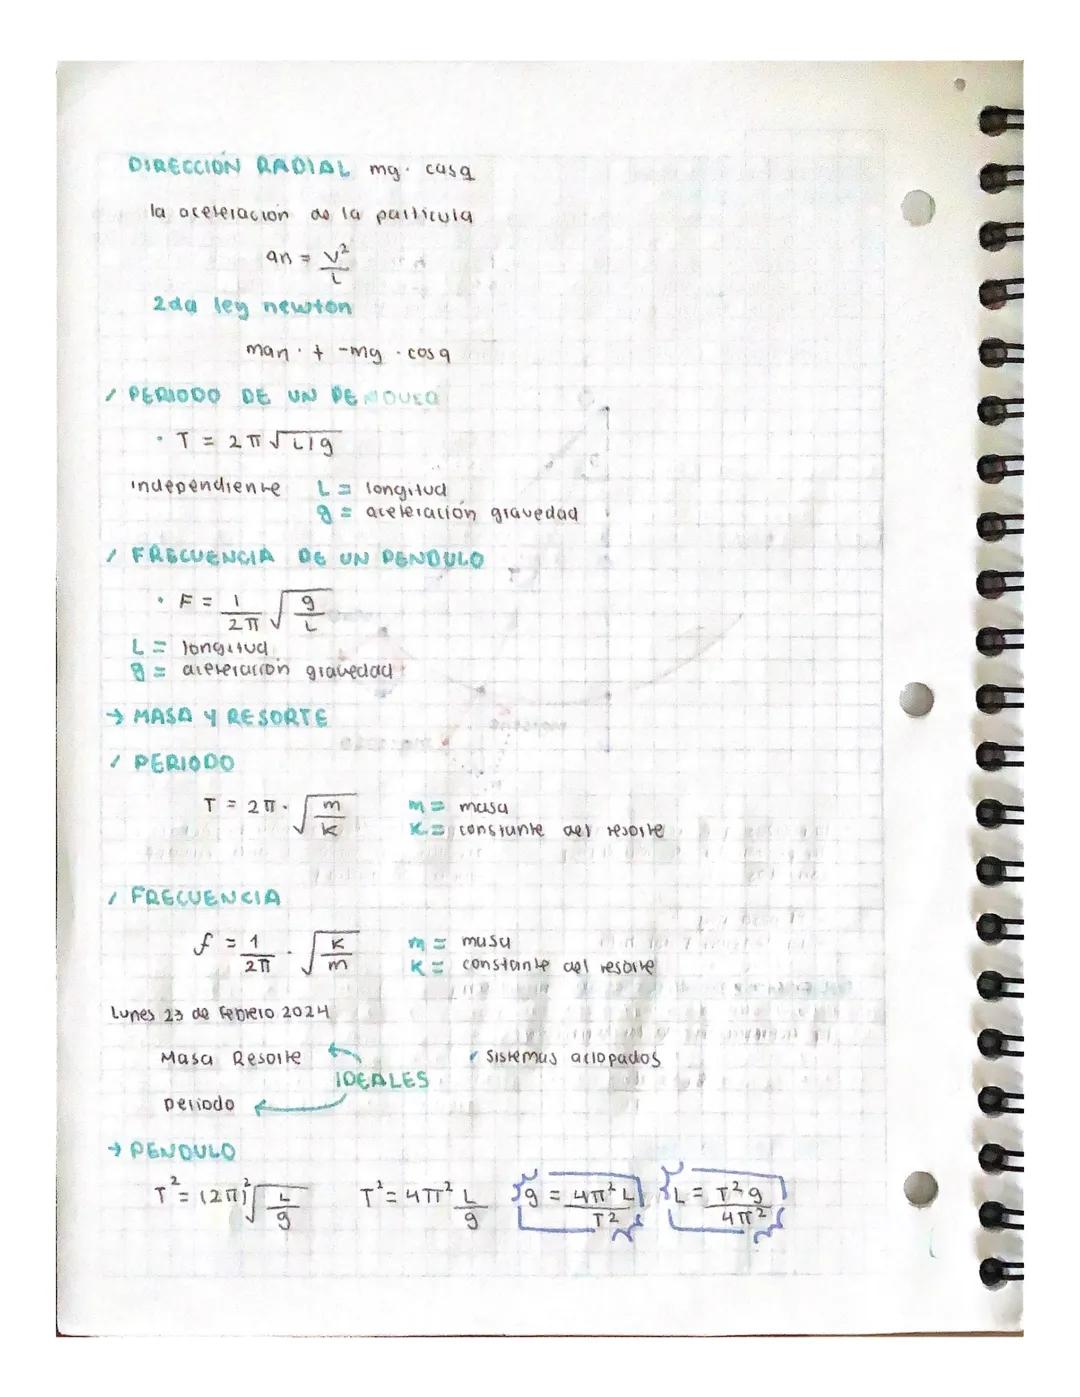 DIRECCIÓN RADIAL mg. cosq
la aceleracion de la particula
an = v²/L
2da ley newton
man . + -mg . cosq
/ PERIODO DE UN PENDULO
• T = 2π√L/g
independiente L = longitud
g = aceleración gravedad
/ FRECUENCIA DE UN PENDULO
• F = 1/2π √g/L
L = longitud
g = aceleración gravedad
→ MASA Y RESORTE
/ PERIODO
T = 2π . √m/K m = masa
K = constante del resorte
/ FRECUENCIA
f = 1/2π . √K/m m = masa
K = constante del resorte
Lunes 23 de Febrero 2024
Masa Resorte ✓ Sistemas aclopados
IDEALES
periodo
→ PENDULO
T² = (2π)²√L/g T² = 4π² L/g g = 4π² L/T2 L = T² g/4π²